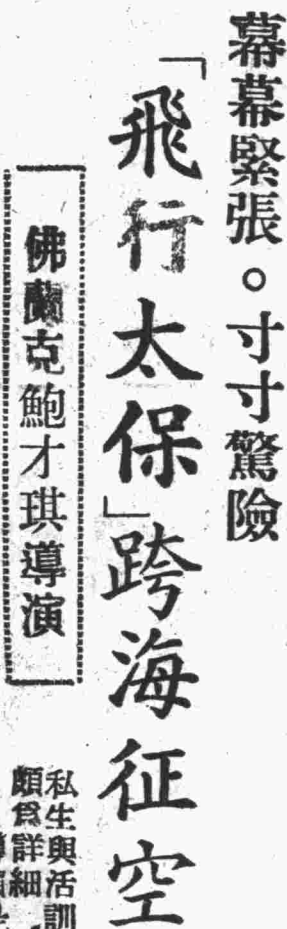 幕幕緊張。寸寸驚險
「飛行太保」跨海征空
佛蘭克鮑才琪導演
私生與活訓
頗為詳細